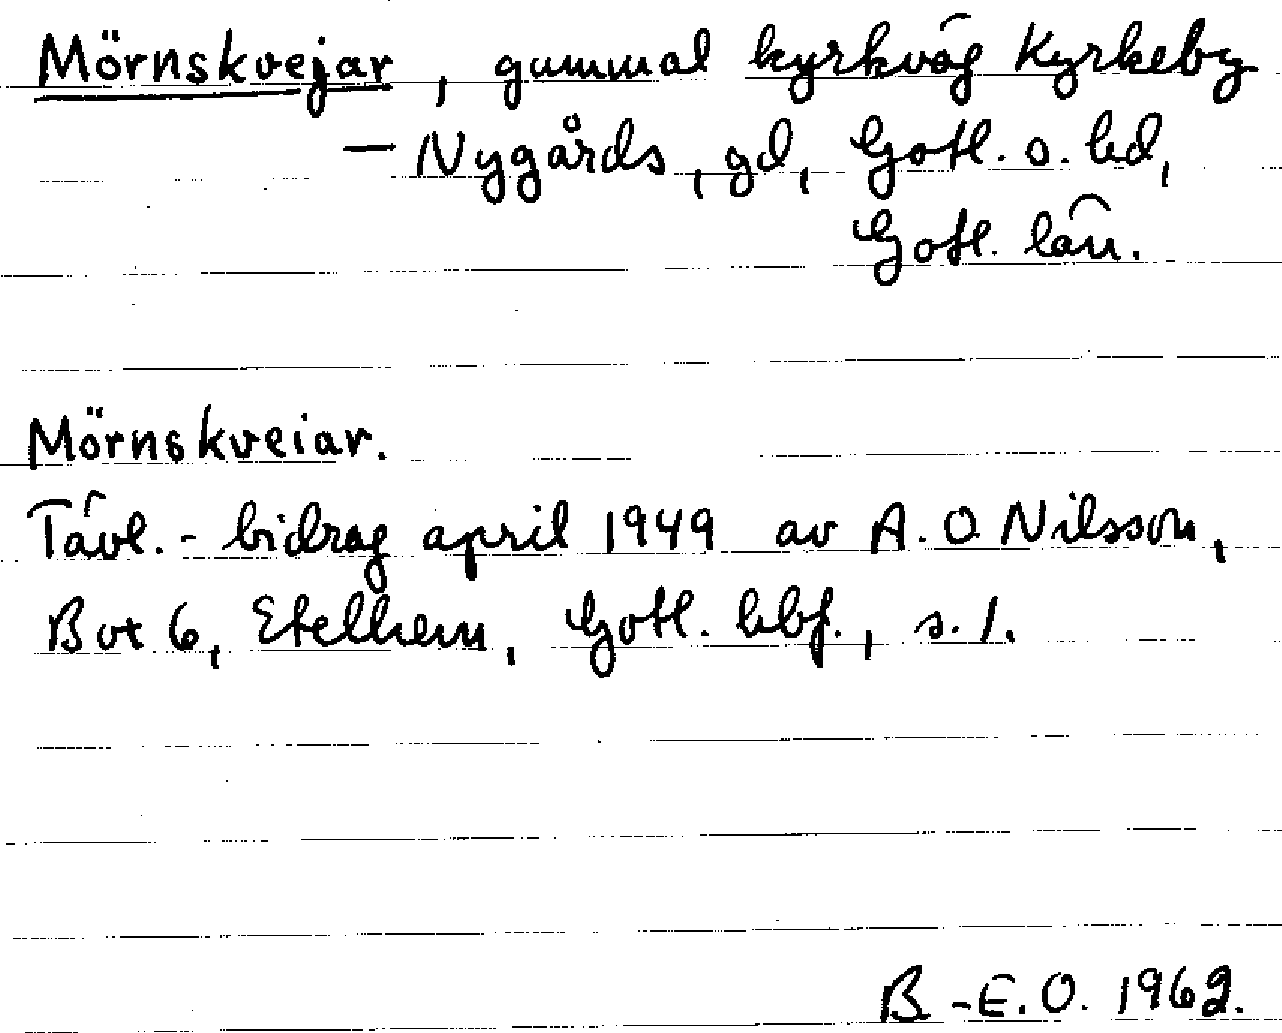 Mörnskvejar, gammal kyrkväg Kyrkeby
— Nygårds, gd, Gotl. s. hd,
Gotl. län.
Mörnskveiar.
Tävl.- bidrag april 1949 av A. O Nilsson,
Box 6, Etelhem, Gotl. hbf., s. 1.
B -E. O. 1962.